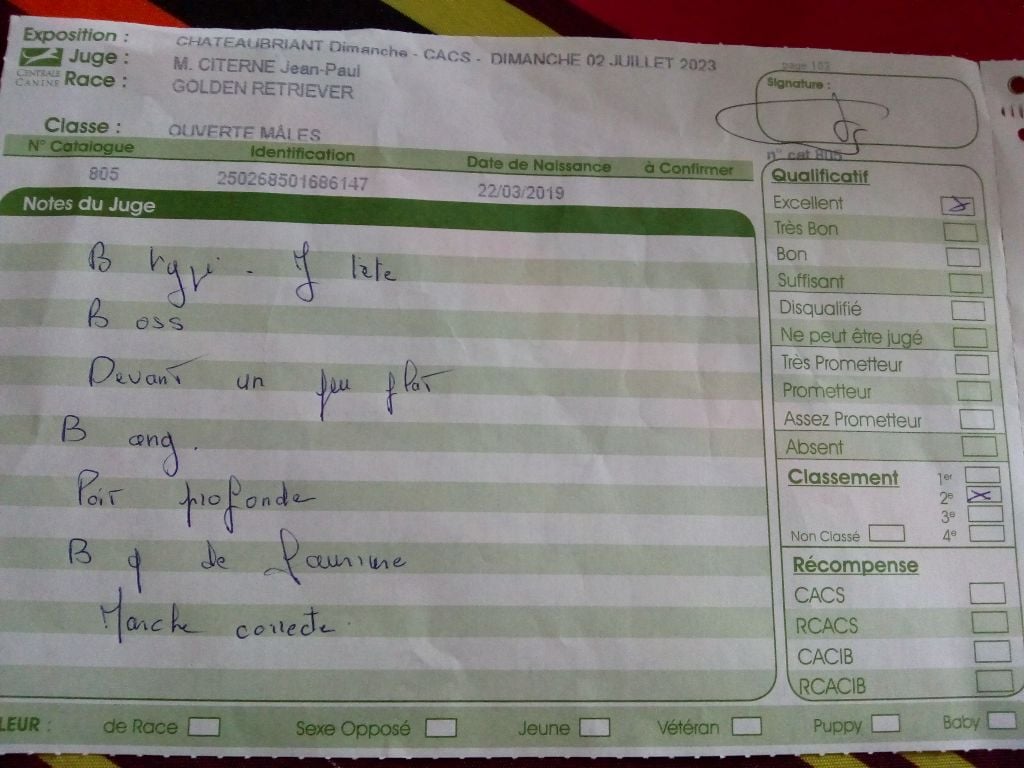 Exposition : CHATEAUBRIANT Dimanche - CACS - DIMANCHE 02 JUILLET 2023
Juge : M. CITERNE Jean-Paul
CENTRALE CANINE
Race : GOLDEN RETRIEVER
page 103
Signature :
Classe : OUVERTE MÂLES
N° Catalogue Identification Date de Naissance à Confirmer
n° cat 805
805 250268501686147 22/03/2019
Notes du Juge
B typé - J tête
B oss
Devant un peu plat
B ang.
Poit profonde
B q de fourrure
Marche correcte
Qualificatif
Excellent
Très Bon
Bon
Suffisant
Disqualifié
Ne peut être jugé
Très Prometteur
Prometteur
Assez Prometteur
Absent
Classement
1er
2e
3e
Non Classé 4e
Récompense
CACS
RCACS
CACIB
RCACIB
LEUR : de Race Sexe Opposé Jeune Vétéran Puppy Baby